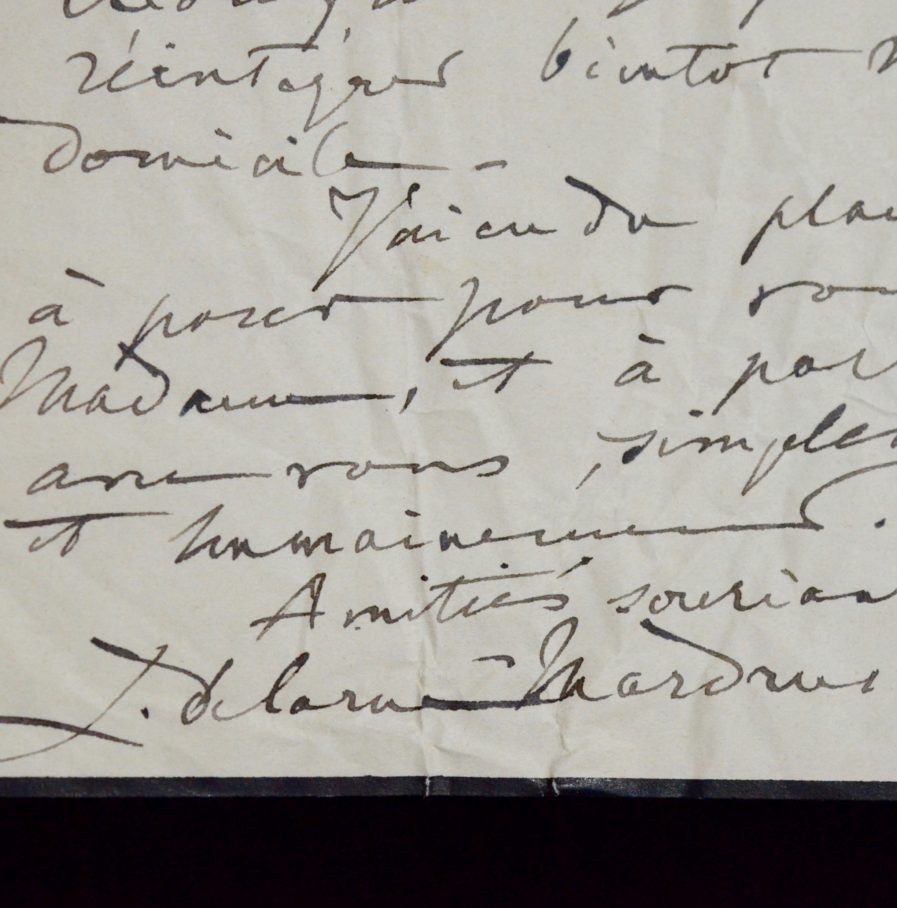 réintégrer bientôt
domicile –
J'ai eu du plai
à poser pour vou
Madame, et à par
avec vous, simplem
et humainement.
Amitiés sourian
L. Delarue-Mardrus